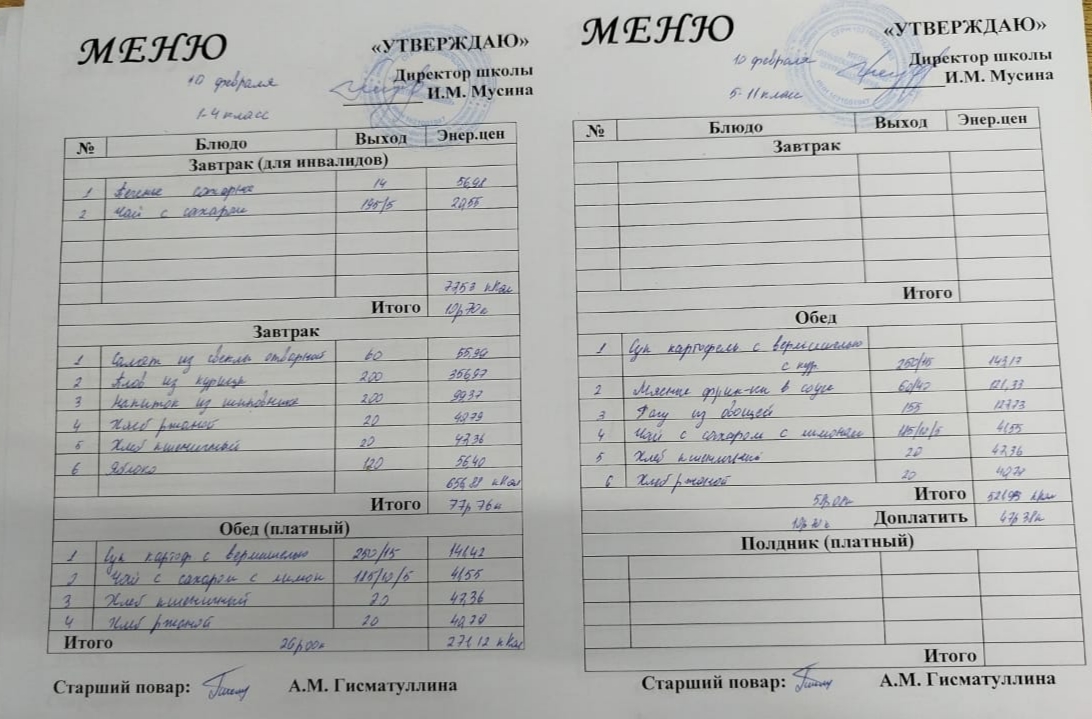 МЕНЮ
«УТВЕРЖДАЮ»
10 февраля
Директор школы
И.М. Мусина
1-4 класс
№ Блюдо Выход Энер.цен
Завтрак (для инвалидов)
1 Печенье сахарное 14 56,98
2 Чай с сахаром 195/5 20,55
77,53 кКал
Итого 10р70к
Завтрак
1 Салат из свеклы отварной 60 55,99
2 Плов из курицы 200 356,97
3 Напиток из шиповника 200 99,37
4 Хлеб ржаной 20 40,79
5 Хлеб пшеничный 20 47,36
6 Яблоко 120 56,40
656,88 кКал
Итого 77р 76к
Обед (платный)
1 Суп картоф с вермишелью 250/15 141,42
2 Чай с сахаром с лимон 185/10/5 41,55
3 Хлеб пшеничный 20 47,36
4 Хлеб ржаной 20 40,79
Итого 26р00к 271,12 кКал
Старший повар: А.М. Гисматуллина
МЕНЮ
«УТВЕРЖДАЮ»
10 февраля
Директор школы
И.М. Мусина
5-11 класс
№ Блюдо Выход Энер.цен
Завтрак
Итого
Обед
1 Суп картофель с вермишелью
с кур. 250/15 143,17
2 Мясные фрик-ки в соусе 60/40 121,33
3 Рагу из овощей 155 127,73
4 Чай с сахаром с лимоном 185/10/5 41,55
5 Хлеб пшеничный 20 47,36
6 Хлеб ржаной 20 40,79
Итого 521,93 кКал
Доплатить 47р38к
Полдник (платный)
Итого
Старший повар: А.М. Гисматуллина